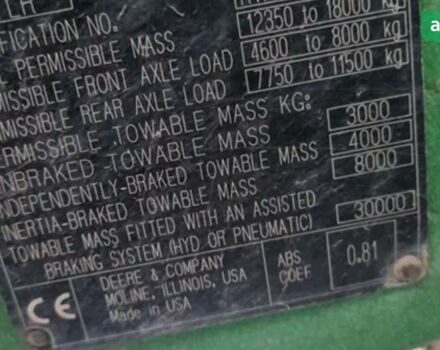 LR
FICATION NO.
PERMISSIBLE MASS 12350 to 18000 kg
MISSIBLE FRONT AXLE LOAD 4600 to 8000 kg
MISSIBLE REAR AXLE LOAD 7750 to 11500 kg
ERMISSIBLE TOWABLE MASS KG:
NBRAKED TOWABLE MASS 3000
NDEPENDENTLY-BRAKED TOWABLE MASS 4000
INERTIA-BRAKED TOWABLE MASS 8000
TOWABLE MASS FITTED WITH AN ASSISTED
BRAKING SYSTEM (HYD OR PNEUMATIC) 30000
CE
DEERE & COMPANY
MOLINE, ILLINOIS, USA
Made in USA
ABS
COEF
0.81
a